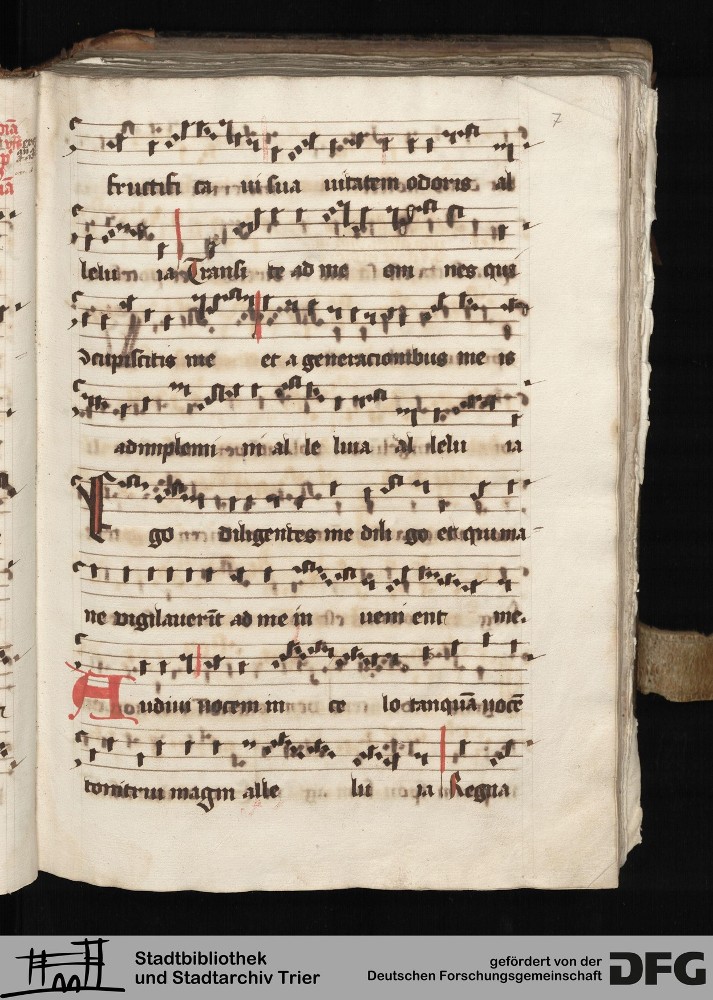 7
fructifi ca ui sua uitatem odoris al
lelu ia Transi te ad me om nes qui
ɔcupiscitis me et a generacionibus me is
adimplemi ni al le luia al lelu ia
Ego diligentes me dili go et qui ma
ne vigilauerīt ad me in ueni ent me.
Audiui uocem in ce lo tanquā uocē
tonitrui magni alle lu ia Regna
Stadtbibliothek
und Stadtarchiv Trier
gefördert von der
Deutschen Forschungsgemeinschaft
DFG